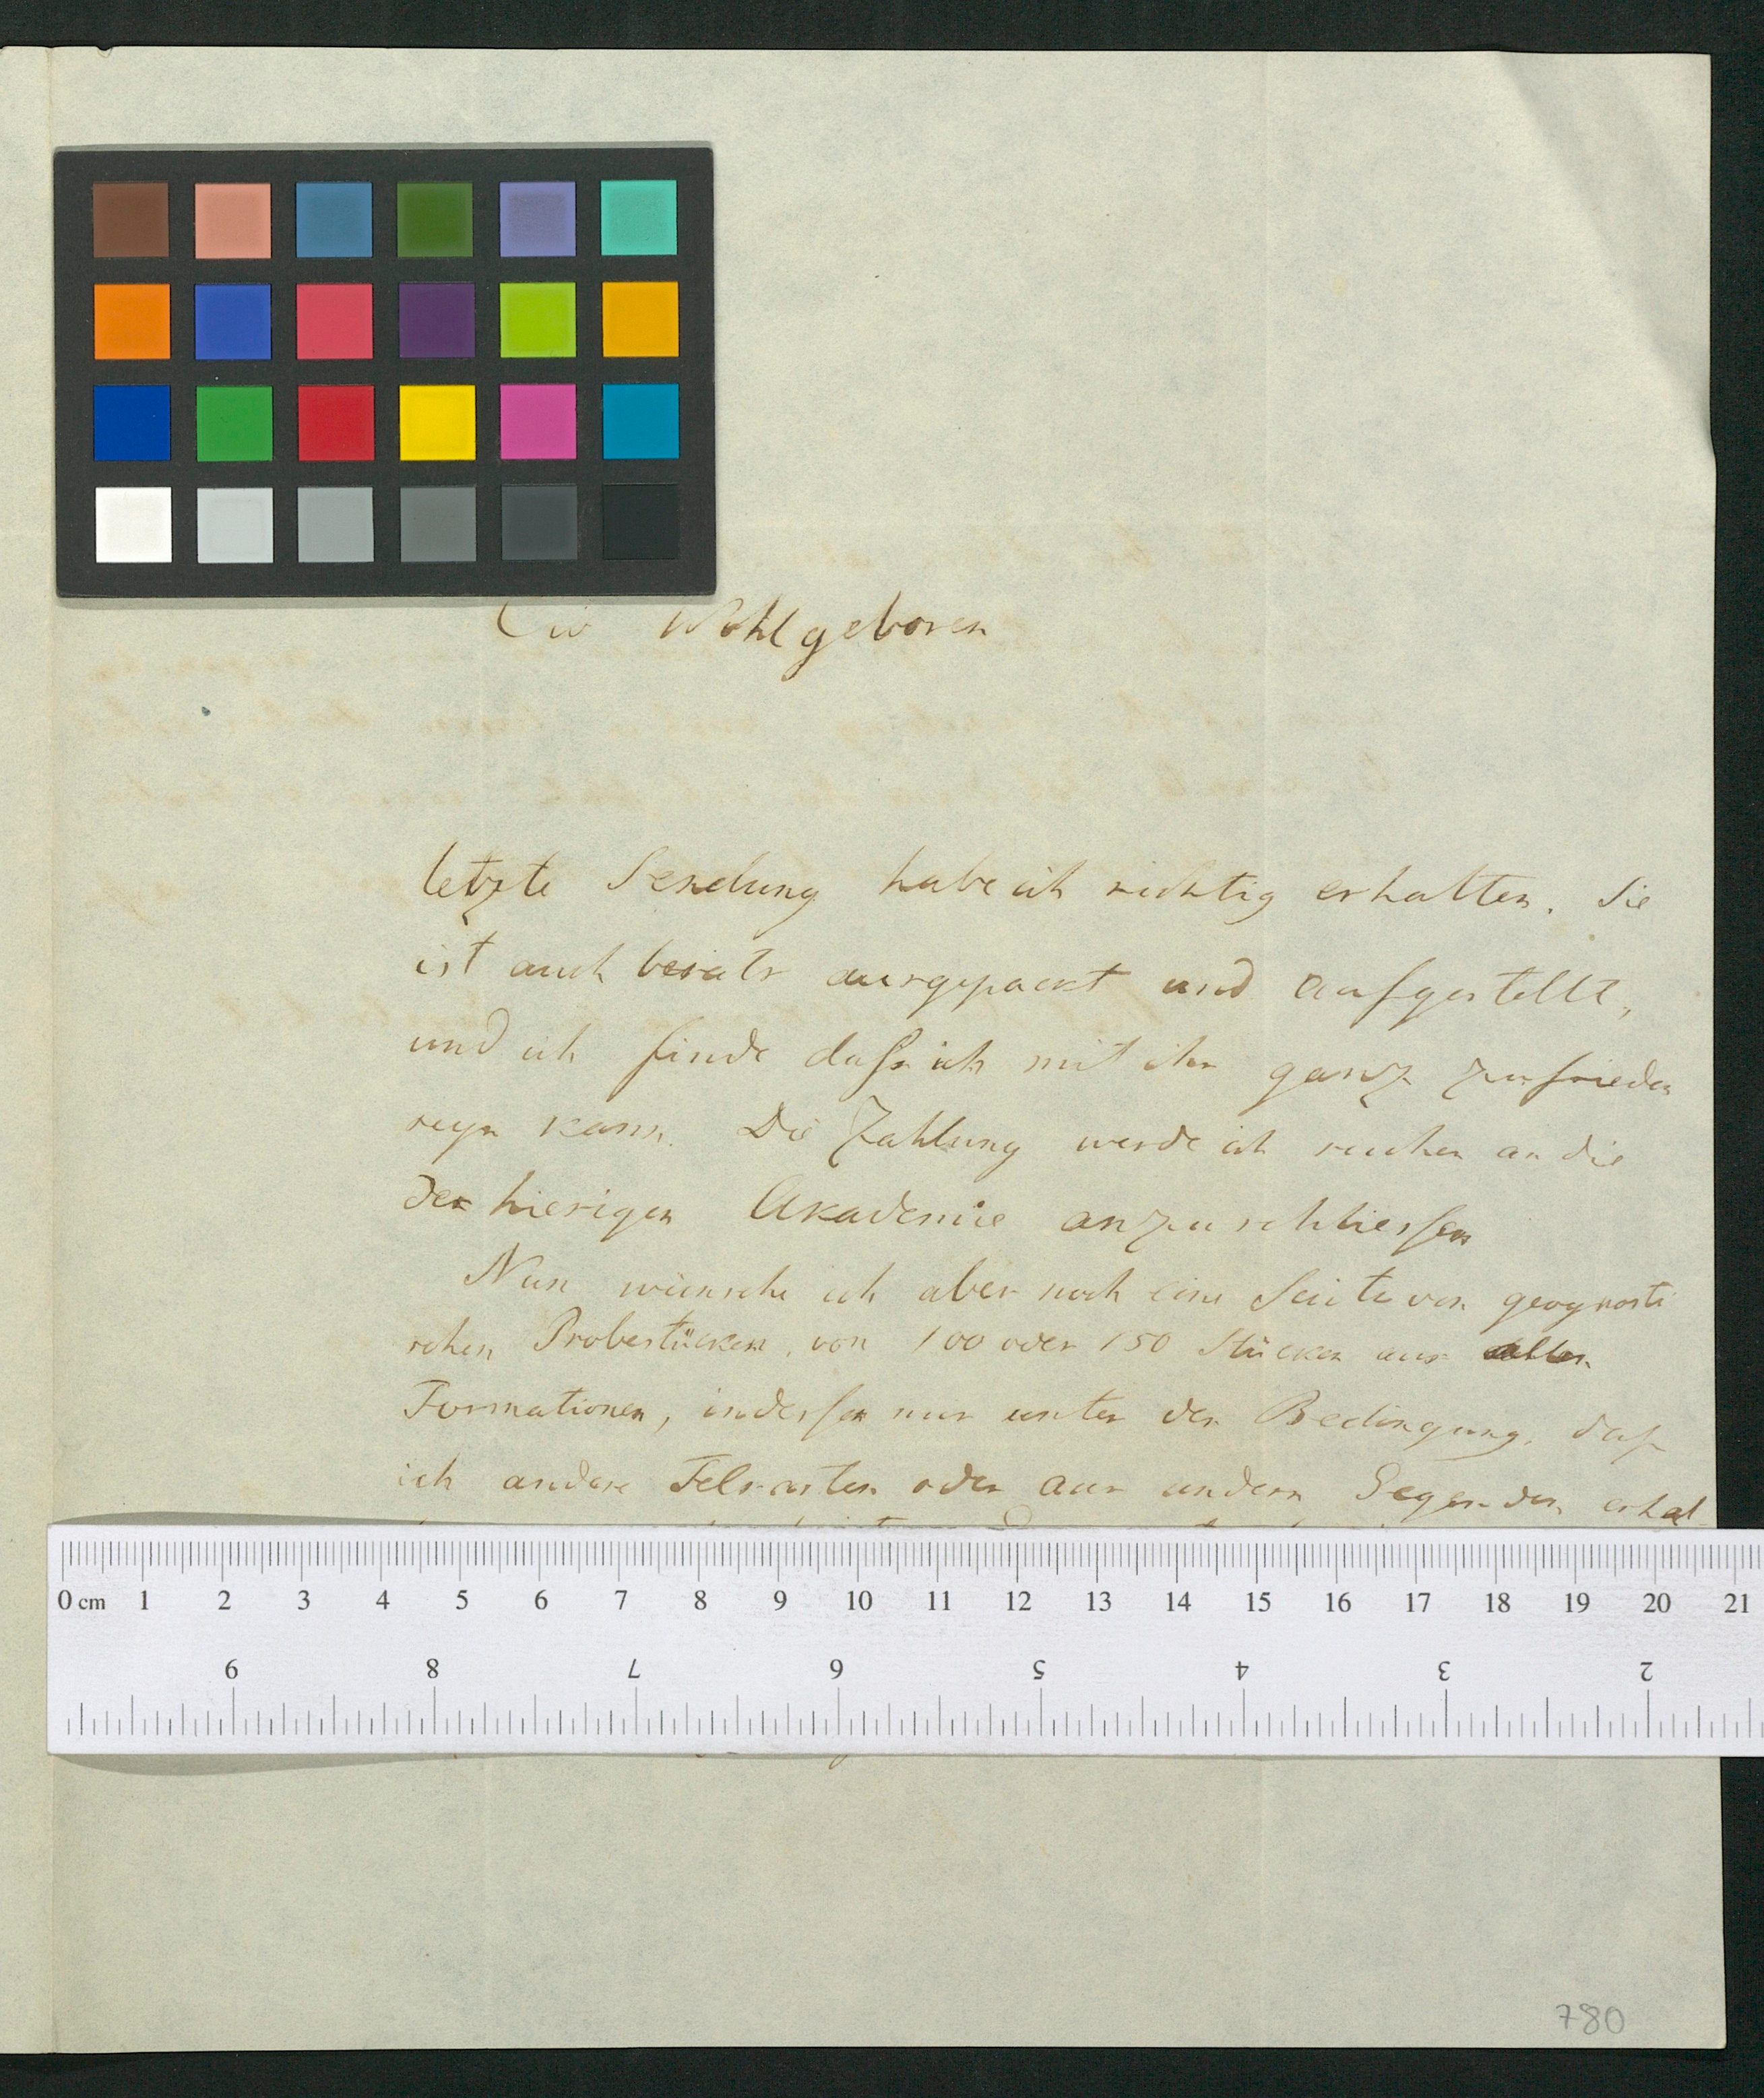 Ew Wohlgeboren
letzte Sendung habe ich richtig erhalten. Sie
ist auch bereits ausgepackt und aufgestellt,
und ich finde dass ich mit ihr ganz zufrieden
seyn kann. Die Zahlung werde ich suchen an die
der hiesigen Akademie anzuschliessen
Nun wünsche ich aber noch eine Suite von geognosti
schen Probestücken, von 100 oder 150 Stücken aus allen
Formationen, indessen nur unter der Bedingung, daß
ich andere Felsarten oder aus andern Gegenden erhal
0 cm 1 2 3 4 5 6 7 8 9 10 11 12 13 14 15 16 17 18 19 20 21
9 8 7 6 5 4 3 2
780